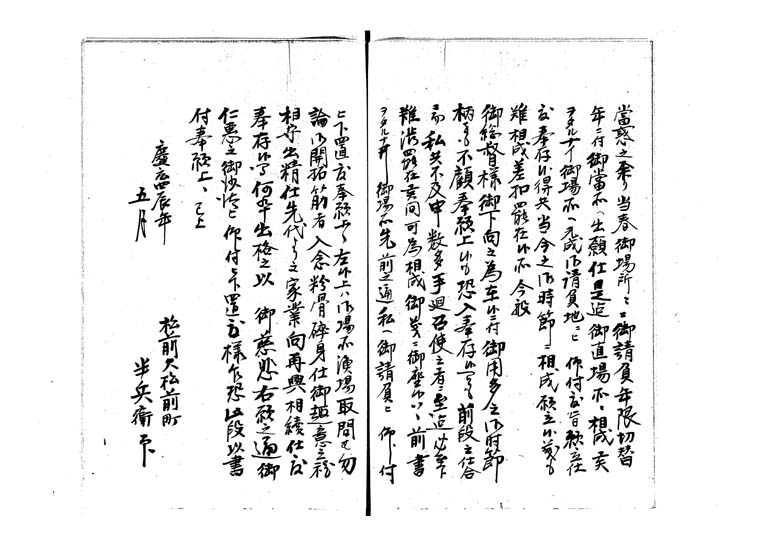 當惑之余り当春御場所ニ而御請負年限切替
年ニ付御當所へ出願仕是迄御直場所ニ相成居
ヲタルナイ御場所へ元成御請負地ニ被仰付度旨願立仕
度奉存候得共当今之御時節ニ相成願立候義も
難相成差扣罷在候所今般
御総督様御下向之為在候ニ付御用多今之御時節
柄をも不顧奉願上候も恐入奉存候得共前段之仕合
ニ而私共不及申数多手廻召使之者ニ至迄必至
難渋罷在候間可為相成御義ニ御座候ハヽ前書
ヲタルナイ御場所先前之通私へ御請負ニ被仰付
被下置度奉願上候左候上ハ御場所漁場取開ハ勿
論御開拓筋者入念粉骨碎身仕御趣意之稜
相守出精仕先代よりの家業向再興相續仕度
奉存候間何卒出格之以御慈悲右願之通御
仁恵之御沙汰ニ被仰付被下置度様乍恐此段以書
付奉願上候以上
慶應四辰年
五月
松前大松前町
半兵衞印